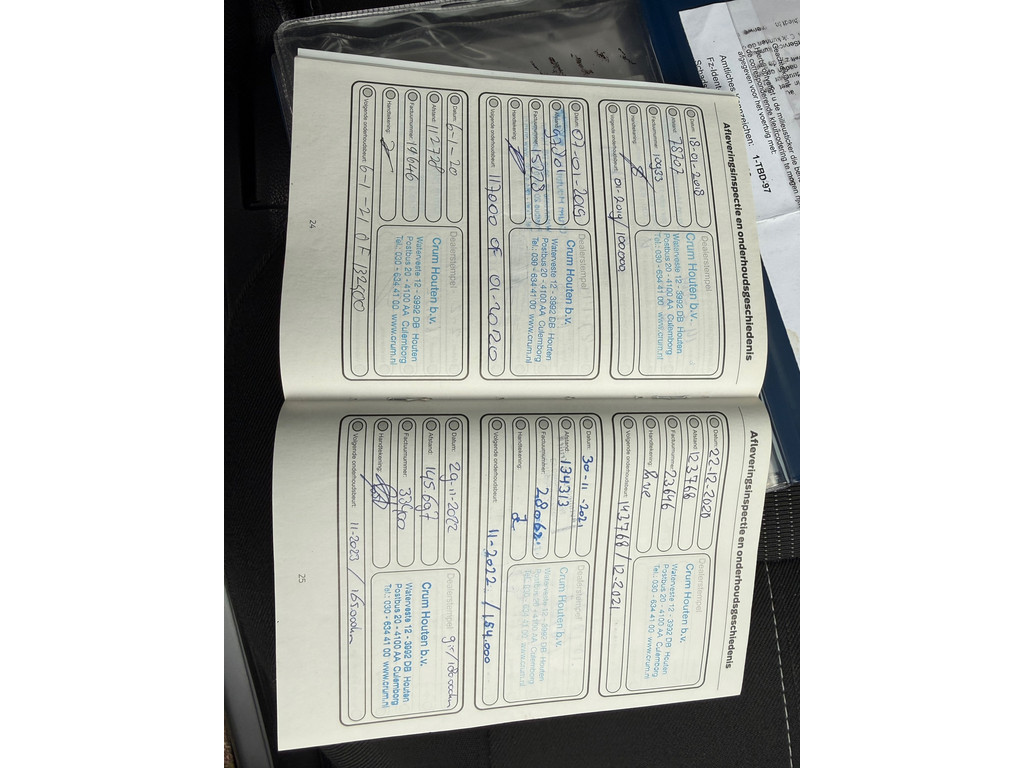 Afleveringsinspectie en onderhoudsgeschiedenis
Datum: 18-01-2018
Afstand: 78707
Factuurnummer: 10933
Handtekening:
Volgende onderhoudsbeurt: 01-2019/100000
Dealerstempel
Crum Houten b.v.
Waterveste 12 - 3992 DB Houten
Postbus 20 - 4100 AA Culemborg
Tel.: 030 - 634 41 00 www.crum.nl
Datum: 07-01-2019
Afstand:
Factuurnummer: 15223
Handtekening:
Volgende onderhoudsbeurt: 117000 OF 01-2020
Dealerstempel
Crum Houten b.v.
Waterveste 12 - 3992 DB Houten
Postbus 20 - 4100 AA Culemborg
Tel.: 030 - 634 41 00 www.crum.nl
Datum: 6-1-20
Afstand: 112738
Factuurnummer: 19646
Handtekening:
Volgende onderhoudsbeurt: 6-1-21 OF 132500
Dealerstempel
Crum Houten b.v.
Waterveste 12 - 3992 DB Houten
Postbus 20 - 4100 AA Culemborg
Tel.: 030 - 634 41 00 www.crum.nl
24
Afleveringsinspectie en onderhoudsgeschiedenis
Datum: 22-12-2020
Afstand: 123768
Factuurnummer: 23646
Handtekening:
Volgende onderhoudsbeurt: 143768 / 12-2021
Dealerstempel
Crum Houten b.v.
Waterveste 12 - 3992 DB Houten
Postbus 20 - 4100 AA Culemborg
Tel.: 030 - 634 41 00 www.crum.nl
Datum: 30-11-2021
Afstand: 134313
Factuurnummer: 28062
Handtekening:
Volgende onderhoudsbeurt: 11-2022 / 154.000
Dealerstempel
Crum Houten b.v.
Waterveste 12 - 3992 DB Houten
Postbus 20 - 4100 AA Culemborg
Tel.: 030 - 634 41 00 www.crum.nl
Datum: 29-11-2022
Afstand: 145697
Factuurnummer: 33400
Handtekening:
Volgende onderhoudsbeurt: 11-2023 / 165000km
Dealerstempel
Crum Houten b.v.
Waterveste 12 - 3992 DB Houten
Postbus 20 - 4100 AA Culemborg
Tel.: 030 - 634 41 00 www.crum.nl
25
de corresponderende kleurcodering te mogen
afgegeven voor het voertuig met:
Amtliches Kennzeichen: 1-TBD-97